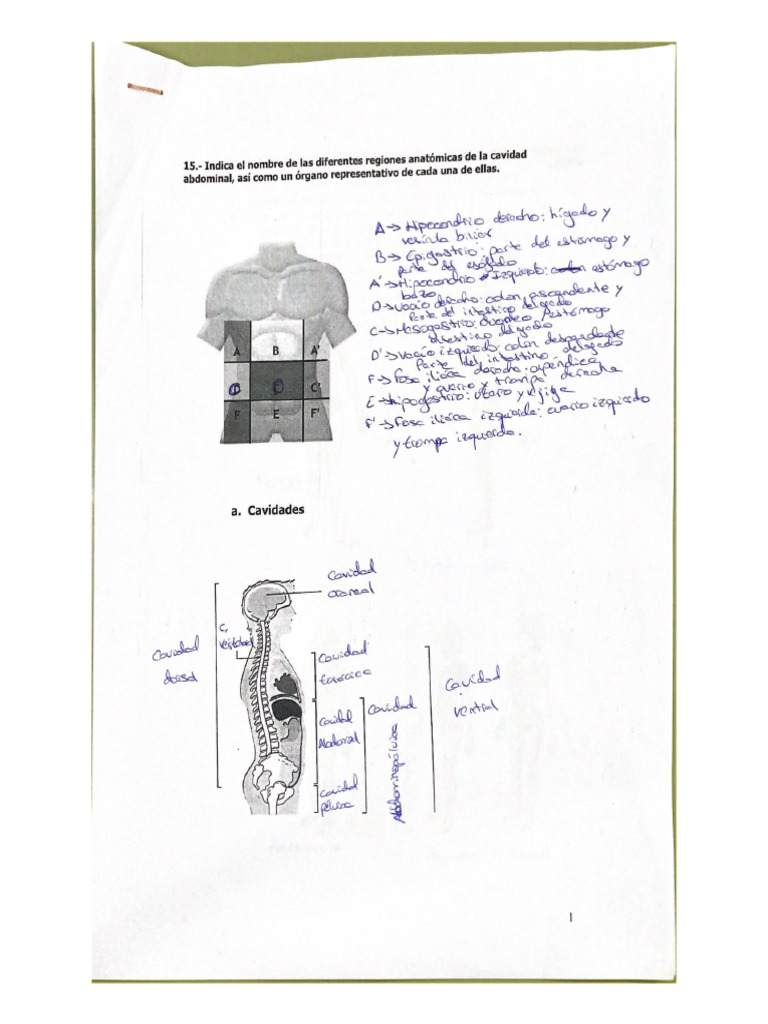 15.- Indica el nombre de las diferentes regiones anatómicas de la cavidad
abdominal, así como un órgano representativo de cada una de ellas.
A → Hipocondrio derecho: hígado y
vesícula biliar
B → Epigastrio: parte del estómago y
parte del esófago
A' → Hipocondrio Izquierdo: estómago
bazo
D → vacío derecho: colon ascendente y
Parte del intestino delgado
C → Mesogastrio: estómago
intestino delgado
D' → vacío izquierdo: colon descendente
Parte del intestino delgado
F → Fosa iliaca derecha: apéndice
y ovario y trompa derecha
E → hipogastrio: útero y vejiga
F' → Fosa iliaca izquierda: ovario izquierdo
y trompa izquierda.
A B A'
D C'
F E F'
a. Cavidades
Cavidad
craneal
C.
vertebral
Cavidad
dorsal
Cavidad
torácica
Cavidad
ventral
Cavidad
Abdominopélvica
Cavidad
Abdominal
Cavidad
Pélvica
1